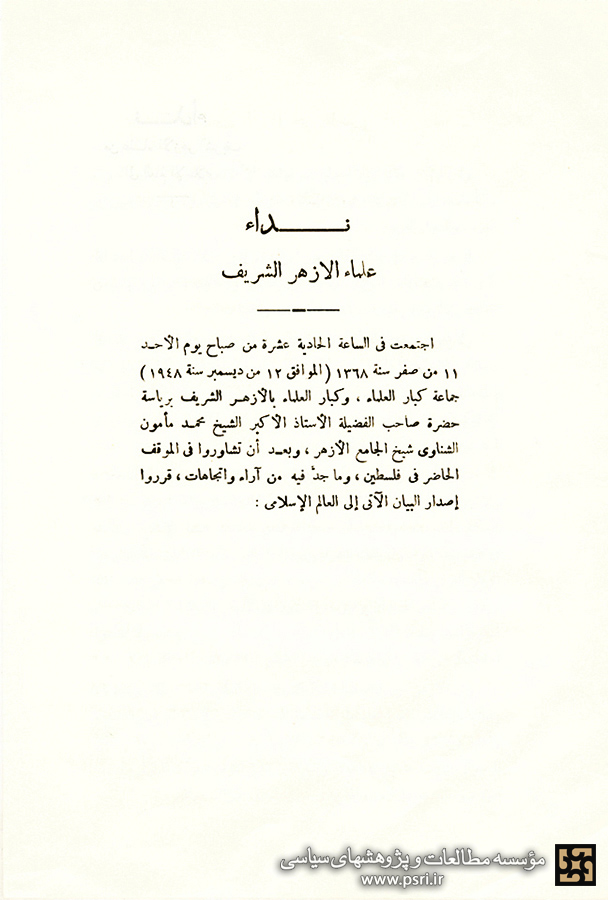 نــــداء
علماء الازهر الشريف
اجتمعت فى الساعة الحادية عشرة من صباح يوم الأحــد
١١ من صفر سنة ١٣٦٨ ( الموافق ١٢ من ديسمبر سنة ١٩٤٨ )
جماعة كبار العلماء ، وكبار العلماء بالأزهــر الشريف برياسة
حضرة صاحب الفضيلة الأستاذ الأكبر الشيخ محمـد مأمون
الشناوى شيخ الجامع الأزهر ، وبعـد أن تشاوروا فى الموقف
الحاضر فى فلسطين ، وما جدّ فيه من آراء واتجاهات ، قرروا
إصدار البيان الآتى إلى العالم الإسلامى :
مؤسسه مطالعات و پژوهشهای سیاسی
www.psri.ir